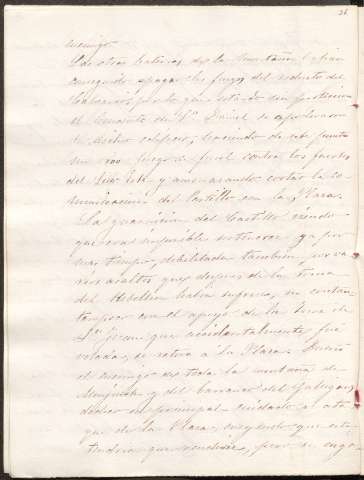 26
enemigo.
Las otras baterias de la montaña habian
conseguido apagar los fuegos del reducto del
por lo que estando sin proteccion
el Convento de Sn. Daniel se apoderaron
de dicho edificio, haciendo de este punto
un vivo fuego de fusil contra los fuertes
del y amenazando cortar la co-
municacion del Castillo con la Plaza.
La guarnicion del Castillo viendo
que era imposible sostenerse ya por
mas tiempo, debilitada tambien por va-
rios asaltos que despues de la toma
del Rebellin habia sufrido, no contan
tampoco con el apoyo de la torre de
Sn. Juan que accidentalmente fué
volada, se retiró a la Plaza. Dueño
el enemigo de toda la montaña de
Monjuich y del barranco del Galligans
dedicó su principal cuidado al ata-
que de la Plaza, creyendo que esta
tendria que rendirse, pero se enga-